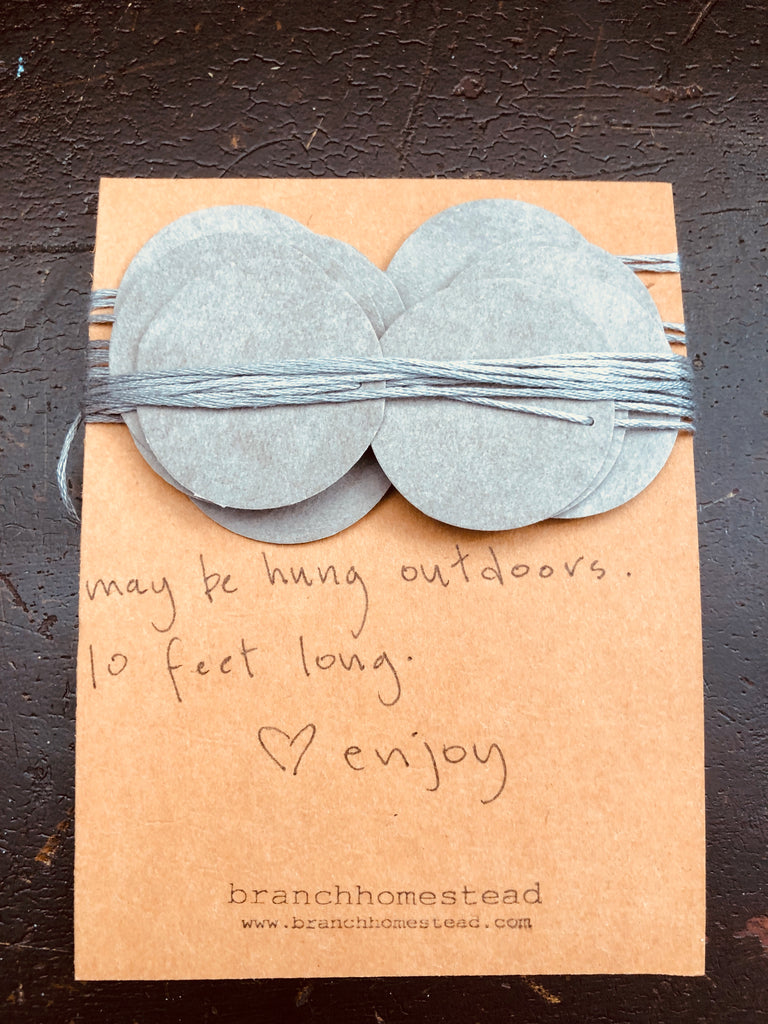 may be hung outdoors.
10 feet long.
♡ enjoy
branchhomestead
www.branchhomestead.com